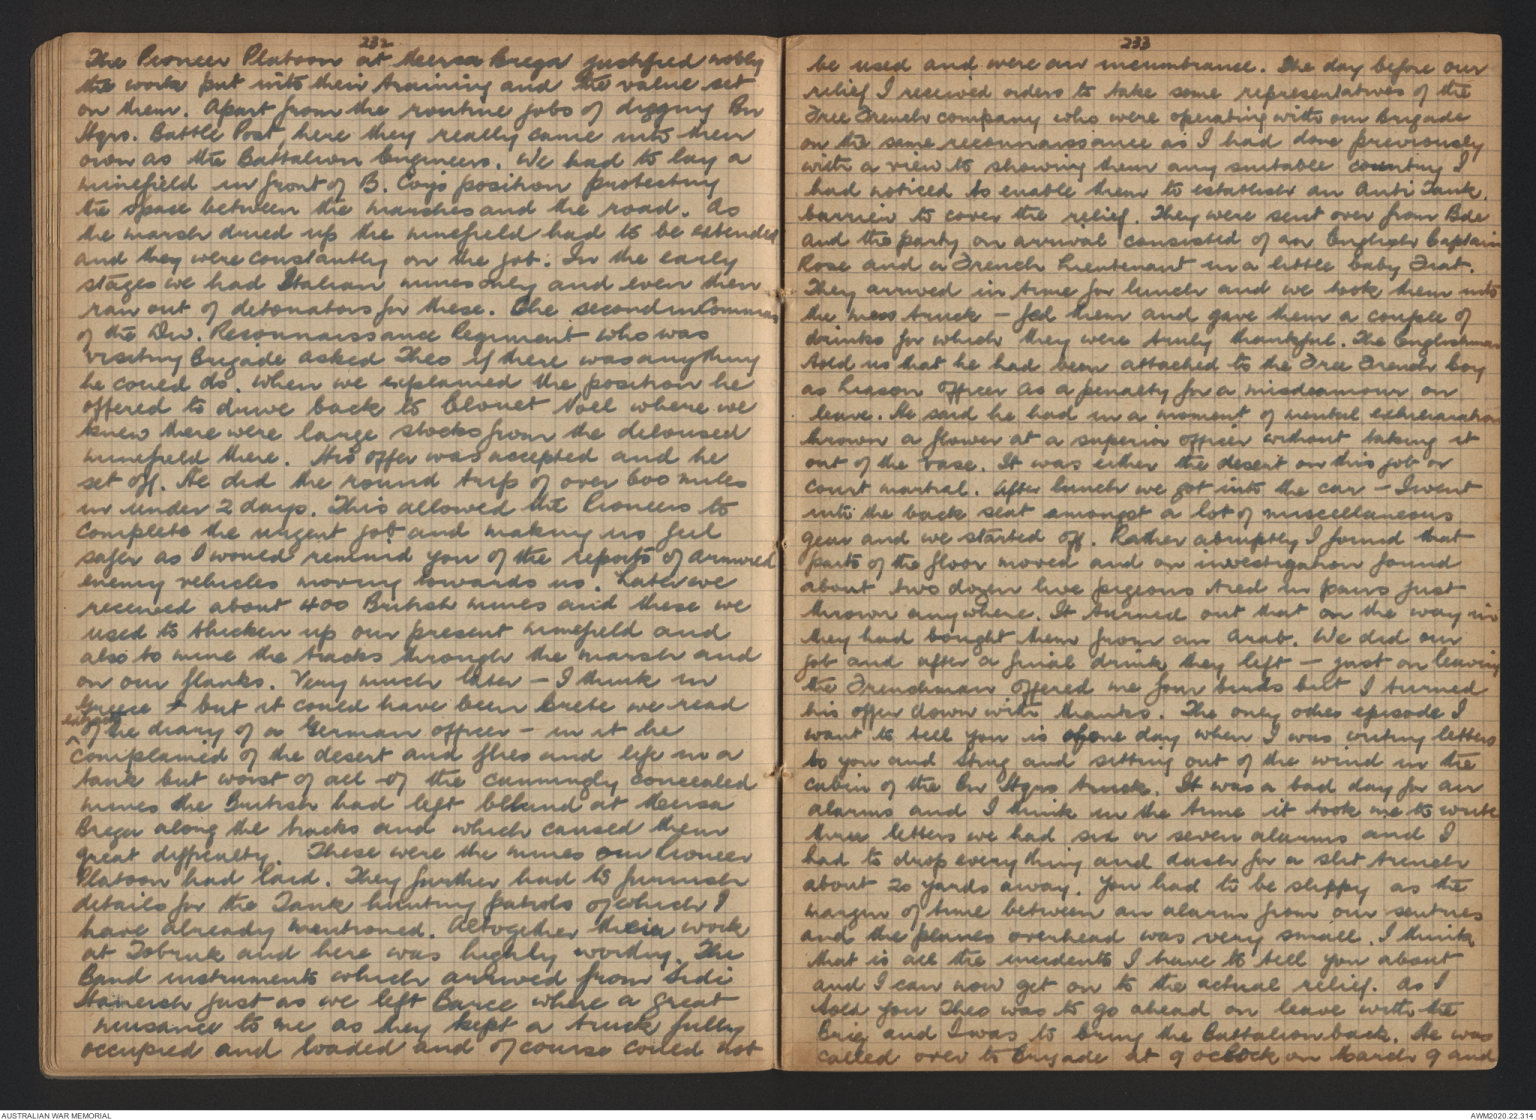 232
The Pioneer Platoon at Mersa Brega justified nobly
the work put into their training and the value set
on them. Apart from the routine jobs of digging Bn
Hqrs. Battle Post, here they really came into their
own as the Battalion Engineers. We had to lay a
minefield in front of B. Coy's position protecting
the space between the marshes and the road. As
the marsh dried up the minefield had to be extended
and they were constantly on the job. In the early
stages we had Italian mines only and even then
ran out of detonators for these. The second in Command
of the Div. Reconnaissance Regiment who was
visiting Brigade asked Theo if there was anything
he could do. When we explained the position he
offered to drive back to Clouet Noel where we
knew there were large stocks from the deloused
minefield there. His offer was accepted and he
set off. He did the round trip of over 600 miles
in under 2 days. This allowed the Pioneers to
complete the urgent job and making us feel
safer as I would remind you of the reports of armoured
enemy vehicles moving towards us. Later we
received about 400 British mines and these we
used to thicken up our present minefield and
also to mine the tracks through the marsh and
on our flanks. Very much later - I think in
Greece - but it could have been Crete we read
of the diary of a German officer - in it he
complained of the desert and flies and life in a
tank but worst of all - of the cunningly concealed
mines the British had left behind at Mersa
Brega along the tracks and which caused them
great difficulty. These were the mines our Pioneer
Platoon had laid. They further had to furnish
details for the Tank hunting patrols of which I
have already mentioned. Altogether their work
at Tobruk and here was highly worthy. The
Band instruments which arrived from Sidi
Haneish just as we left Barce where a great
nuisance to me as they kept a truck fully
occupied and loaded and of course could not
233
be used and were an incumbrance. The day before our
relief I received orders to take some representatives of the
Free French company who were operating with our Brigade
on the same reconnaissance as I had done previously
with a view to showing them any suitable country I
had noticed to enable them to establish an Anti Tank
barrier to cover the relief. They were sent over from Bde
and the party on arrival consisted of an English Captain
Rose and a French Lieutenant in a little baby Fiat.
They arrived in time for lunch and we took them into
the mess truck - fed them and gave them a couple of
drinks for which they were truly thankful. The Englishman
told us that he had been attached to the Free French Coy
as liason officer as a penalty for a misdeamour on
leave. He said he had in a moment of mental exhilaration
thrown a flower at a superior officer without taking it
out of the vase. It was either the desert on this job or
court martial. After lunch we got into the car - I went
into the back seat amongst a lot of miscellaneous
gear and we started off. Rather abruptly I found that
parts of the floor moved and on investigation found
about two dozen live pigeons tied in pairs just
thrown anywhere. It turned out that on the way in
they had bought them from an Arab. We did our
job and after a final drink they left - just on leaving
the Frenchman offered me four birds but I turned
his offer down with thanks. The only other episode I
want to tell you is of one day when I was writing letters
to you and and sitting out of the wind in the
cabin of the Bn Hqrs truck. It was a bad day for air
alarms and I think in the time it took me to write
three letters we had six or seven alarms and I
had to drop everything and dash for a slit trench
about 20 yards away. You had to be slippy as the
margin of time between an alarm from our sentries
and the planes overhead was very small. I think
that is all the incidents I have to tell you about
and I can now get on to the actual relief. As I
told you Theo was to go ahead on leave with the
Brig and I was to bring the Battalion back. He was
called over to Brigade at 9 oclock on March 9 and
AUSTRALIAN WAR MEMORIAL
AWM2020.22.314